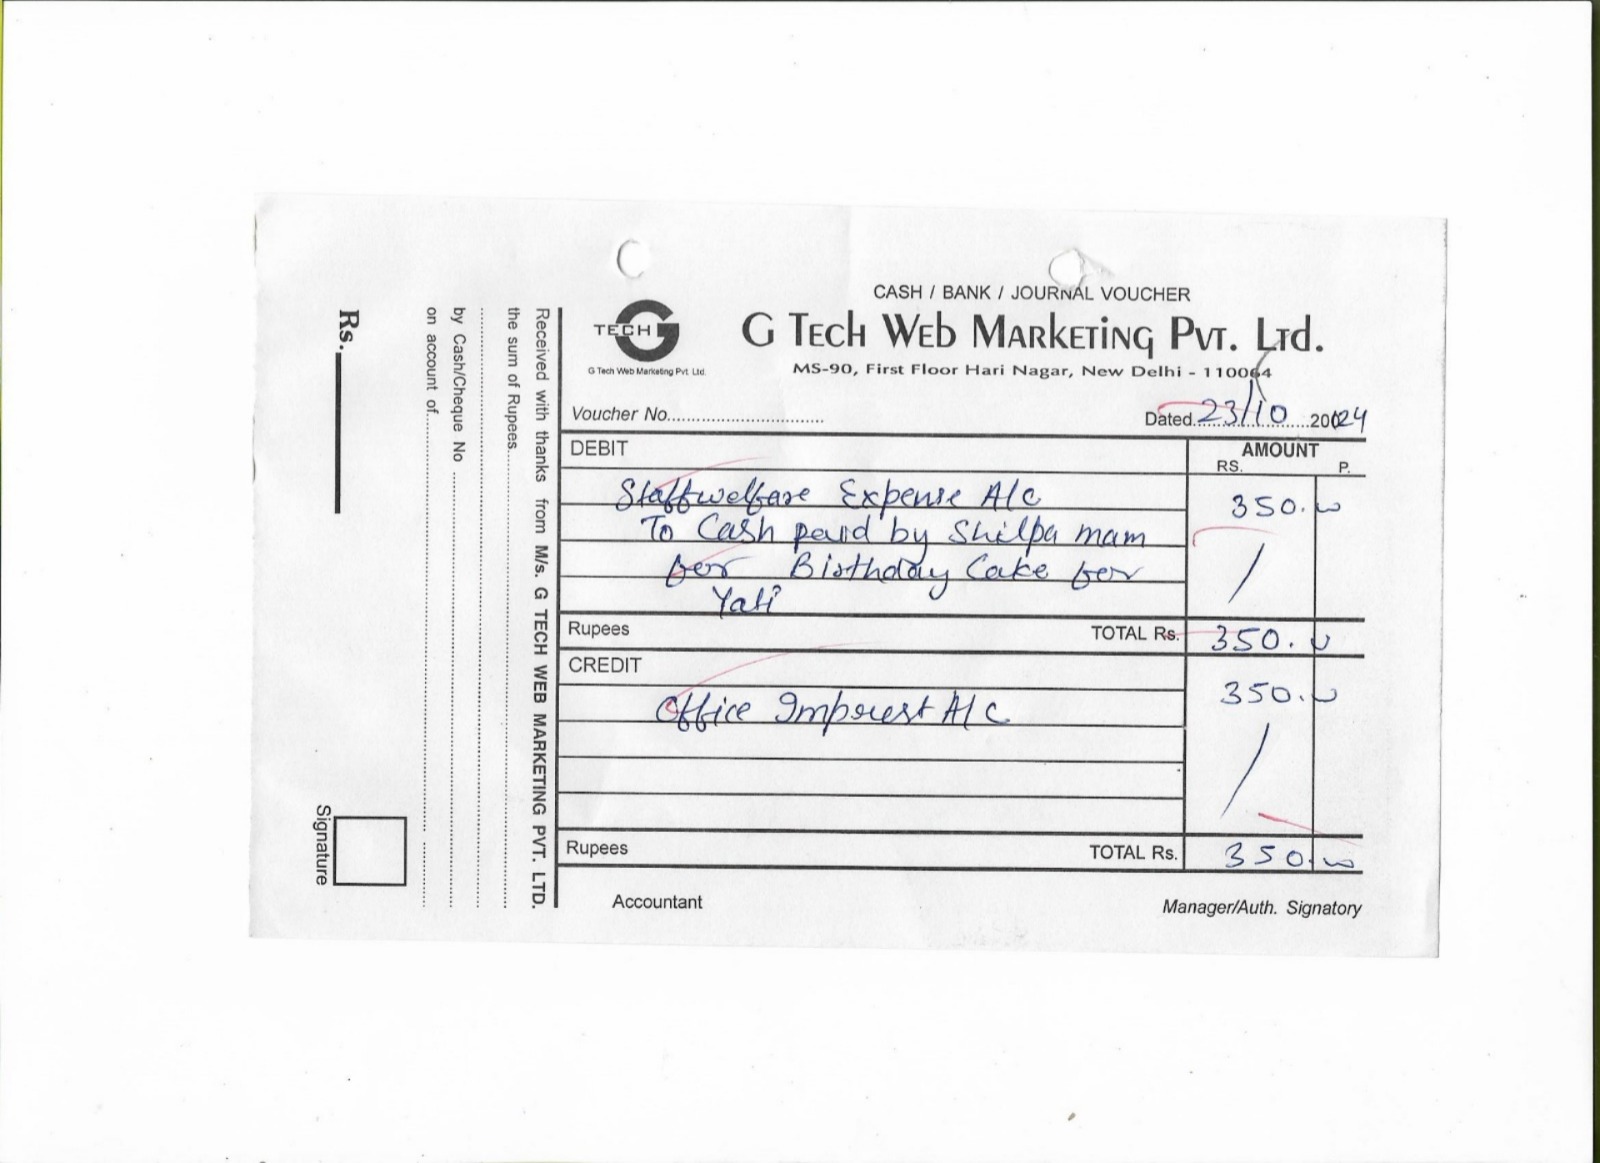 CASH / BANK / JOURNAL VOUCHER
TECH G
G Tech Web Marketing Pvt. Ltd.
G Tech Web Marketing Pvt. Ltd.
MS-90, First Floor Hari Nagar, New Delhi - 110064
Voucher No.............................. Dated..23/10..........2024
DEBIT AMOUNT
RS. P.
Staffwelfare Expense A/c 350.00
To Cash paid by Shilpa mam
for Birthday Cake for
Yati
Rupees TOTAL Rs. 350.00
CREDIT
Office Imprest A/c 350.00
Rupees TOTAL Rs. 350.00
Accountant Manager/Auth. Signatory
Received with thanks from M/s. G TECH WEB MARKETING PVT. LTD.
the sum of Rupees
by Cash/Cheque No
on account of
Rs.
Signature